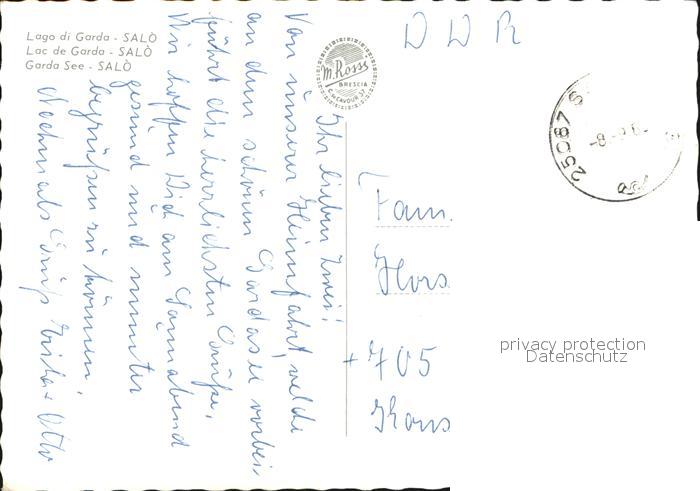 Lago di Garda - SALÒ
Lac de Garda - SALÒ
Garda See - SALÒ
M. Rossi
BRESCIA
C. CAVOUR 37
DDR
25087 S
-8.-9.6-
Ihr lieben Zwei!
Von unserer Heimfahrt, welche
an dem schönen Gardasee vorbei
führt die herzlichsten Grüße.
Wir hoffen Dich am Sonnabend
gesund und munter
begrüßen zu können.
Nochmals Grüße Otto
Fam.
Hors
+ 705
privacy protection
Datenschutz